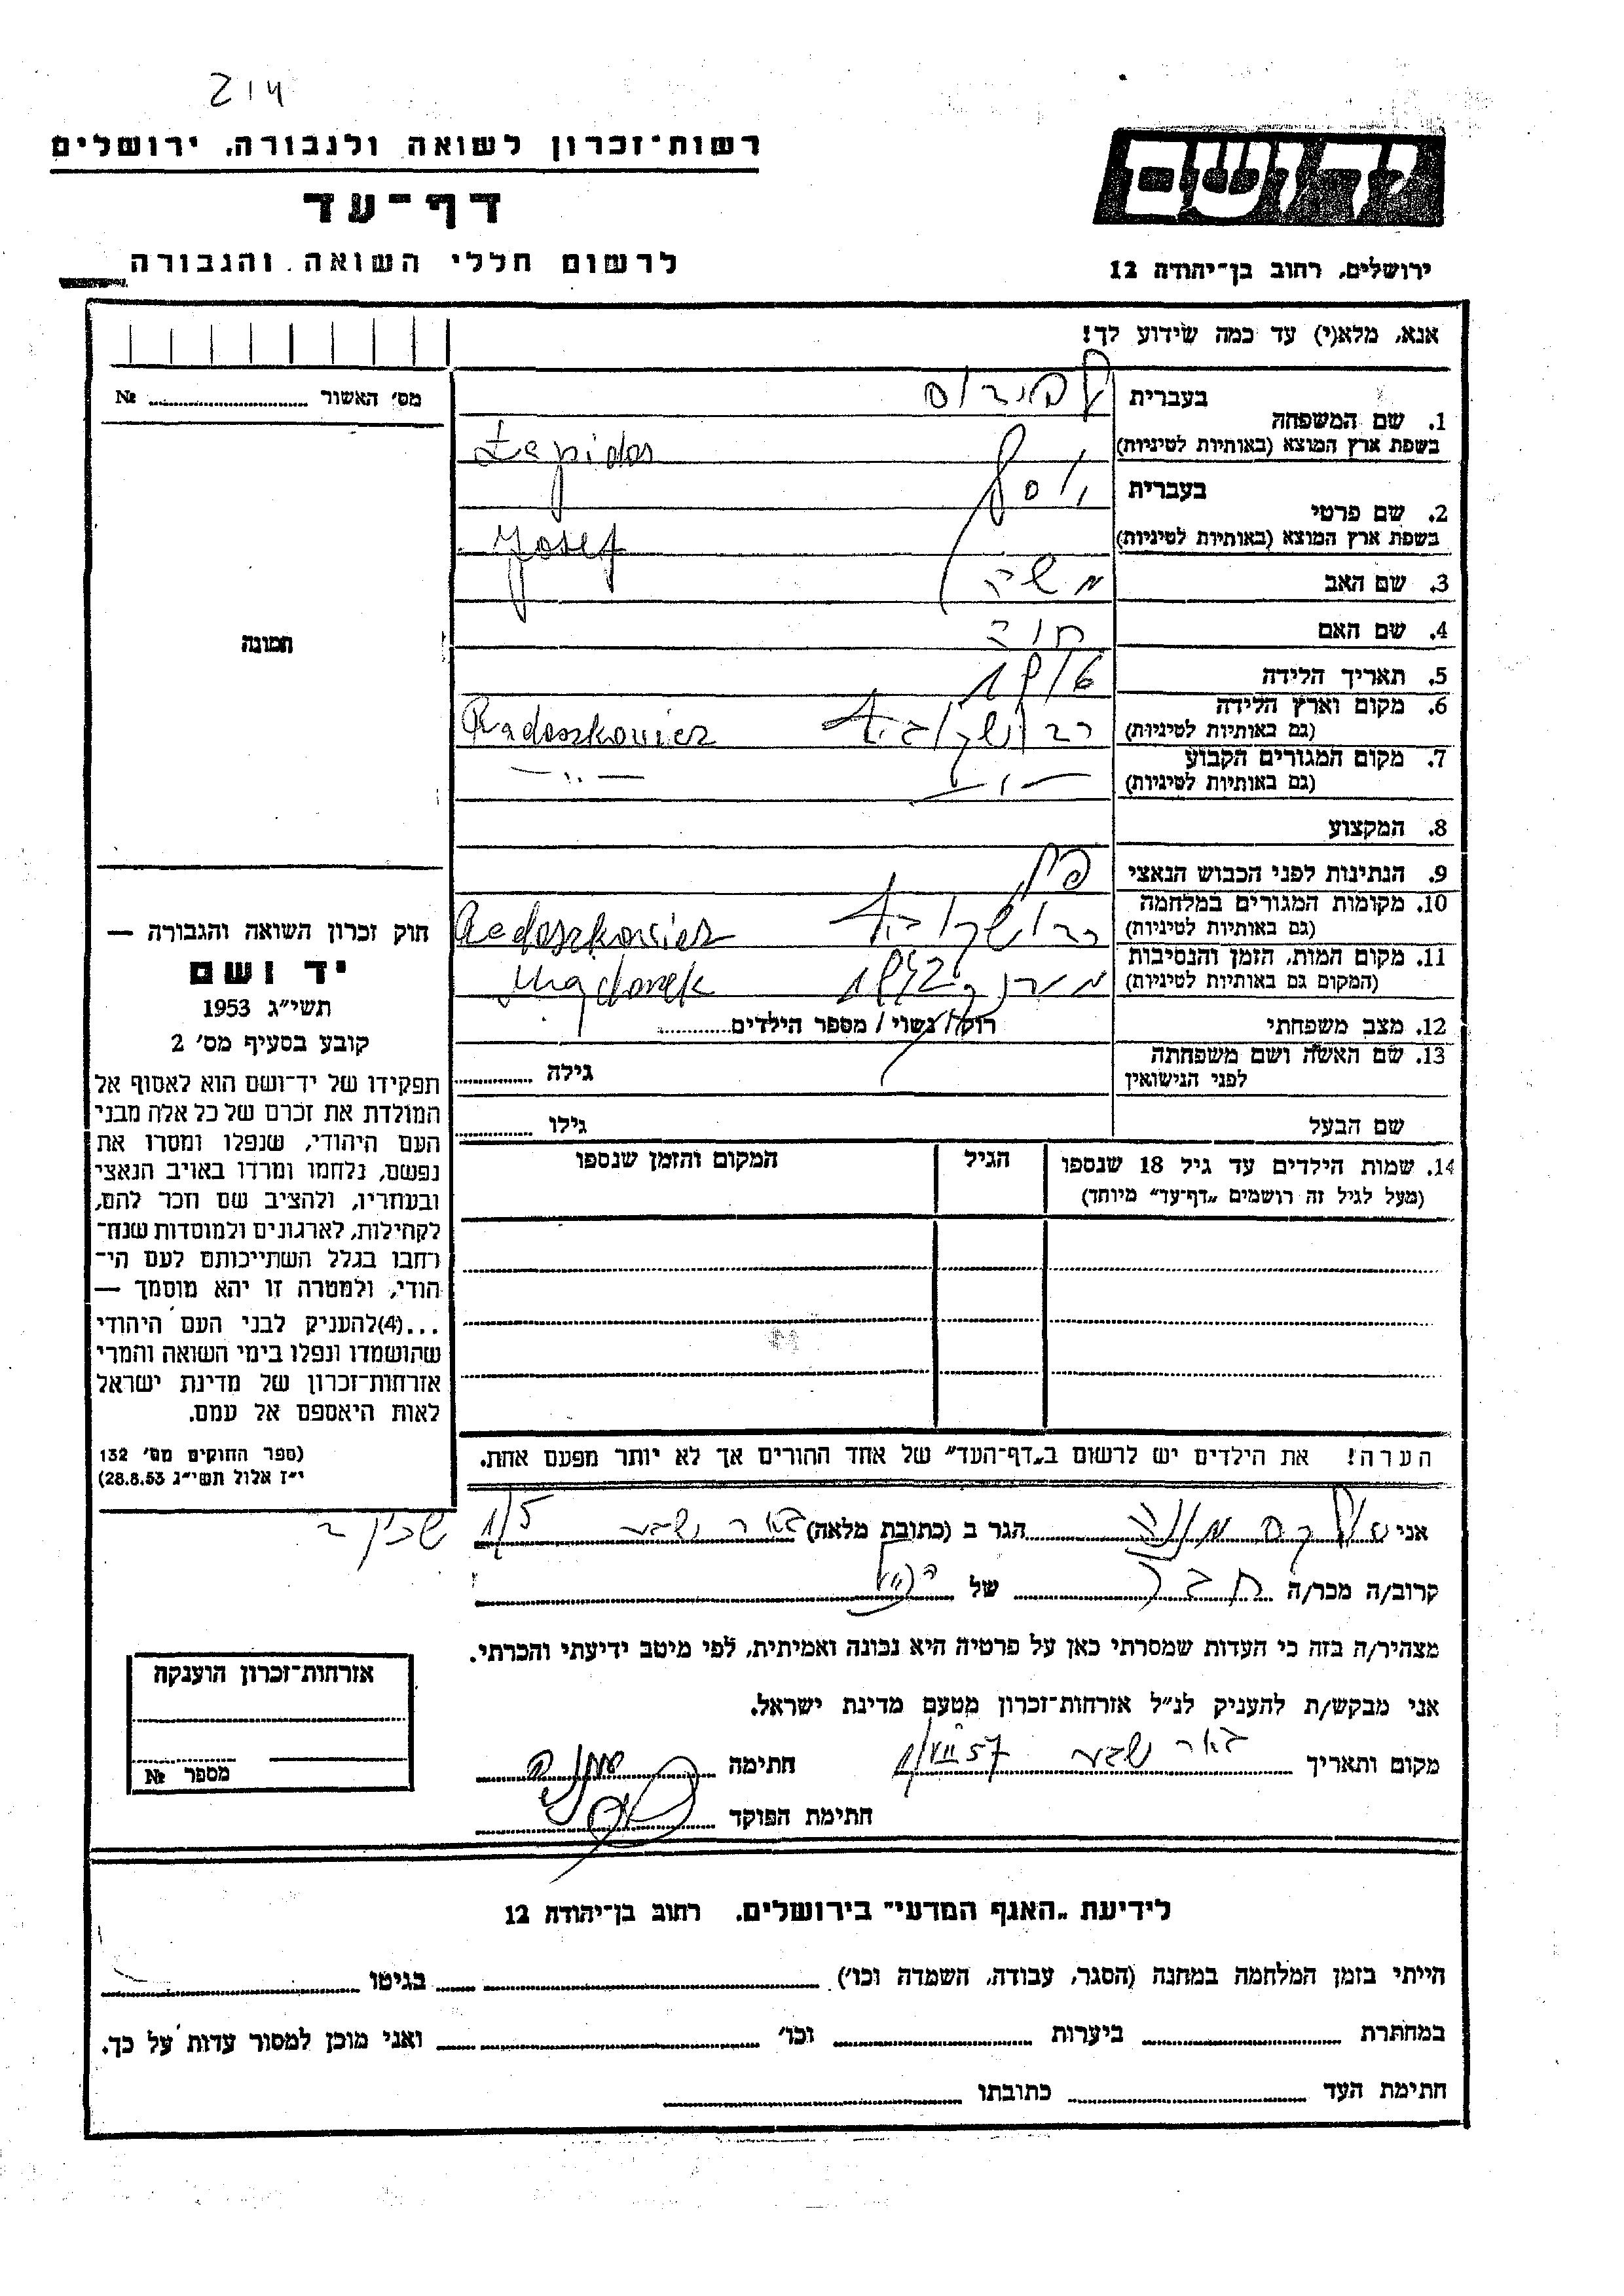 214
רשות־זכרון לשואה ולגבורה, ירושלים
דף־עד
לרשום חללי השואה והגבורה
יד ושם
ירושלים, רחוב בן־יהודה 12
אנא, מלא(י) עד כמה שידוע לך!
מס׳ האשור № 
1. שם המשפחה
בעברית לפידוס
בשפת ארץ המוצא (באותיות לטיניות) Łapidos
2. שם פרטי
בעברית יוסף
בשפת ארץ המוצא (באותיות לטיניות) Josef
3. שם האב משה
4. שם האם חוה
5. תאריך הלידה
6. מקום וארץ הלידה
(גם באותיות לטיניות) Radoszkowicz
7. מקום המגורים הקבוע
(גם באותיות לטיניות) — ״ —
8. המקצוע
9. הנתינות לפני הכבוש הנאצי
10. מקומות המגורים במלחמה
(גם באותיות לטיניות) Radoszkowicz
11. מקום המות, הזמן והנסיבות
(המקום גם באותיות לטיניות) 1942 Majdanek
12. מצב משפחתי רווק / נשוי / מספר הילדים
13. שם האשה ושם משפחתה
לפני הנישואין גילה
שם הבעל גילו
14. שמות הילדים עד גיל 18 שנספו הגיל המקום והזמן שנספו
(מעל לגיל זה רושמים „דף־עד״ מיוחד)
הערה! את הילדים יש לרשום ב„דף־העד״ של אחד ההורים אך לא יותר מפעם אחת.
תמונה
חוק זכרון השואה והגבורה —
יד ושם
תשי״ג 1953
קובע בסעיף מס׳ 2
תפקידו של יד־ושם הוא לאסוף אל
המולדת את זכרם של כל אלה מבני
העם היהודי, שנפלו ומסרו את
נפשם, נלחמו ומרדו באויב הנאצי
ובעוזריו, ולהציב שם וזכר להם,
לקהילות, לארגונים ולמוסדות שנח־
רבו בגלל השתייכותם לעם הי־
הודי, ולמטרה זו יהא מוסמך —
...(4)להעניק לבני העם היהודי
שהושמדו ונפלו בימי השואה והמרי
אזרחות־זכרון של מדינת ישראל
לאות היאספם אל עמם.
(ספר החוקים מס׳ 132
י״ז אלול תשי״ג 28.8.53)
אני הגר ב (כתובת מלאה) באר שבע
קרוב/ה מכר/ה חבר של הנ״ל
מצהיר/ה בזה כי העדות שמסרתי כאן על פרטיה היא נכונה ואמיתית, לפי מיטב ידיעתי והכרתי.
אני מבקש/ת להעניק לנ״ל אזרחות־זכרון מטעם מדינת ישראל.
מקום ותאריך באר שבע חתימה
חתימת הפוקד
אזרחות־זכרון הוענקה
מספר №
לידיעת „האגף המדעי״ בירושלים, רחוב בן־יהודה 12
הייתי בזמן המלחמה במחנה (הסגר, עבודה, השמדה וכו׳) בגיטו
במחתרת ביערות וכו׳ ואני מוכן למסור עדות על כך.
חתימת העד כתובתו